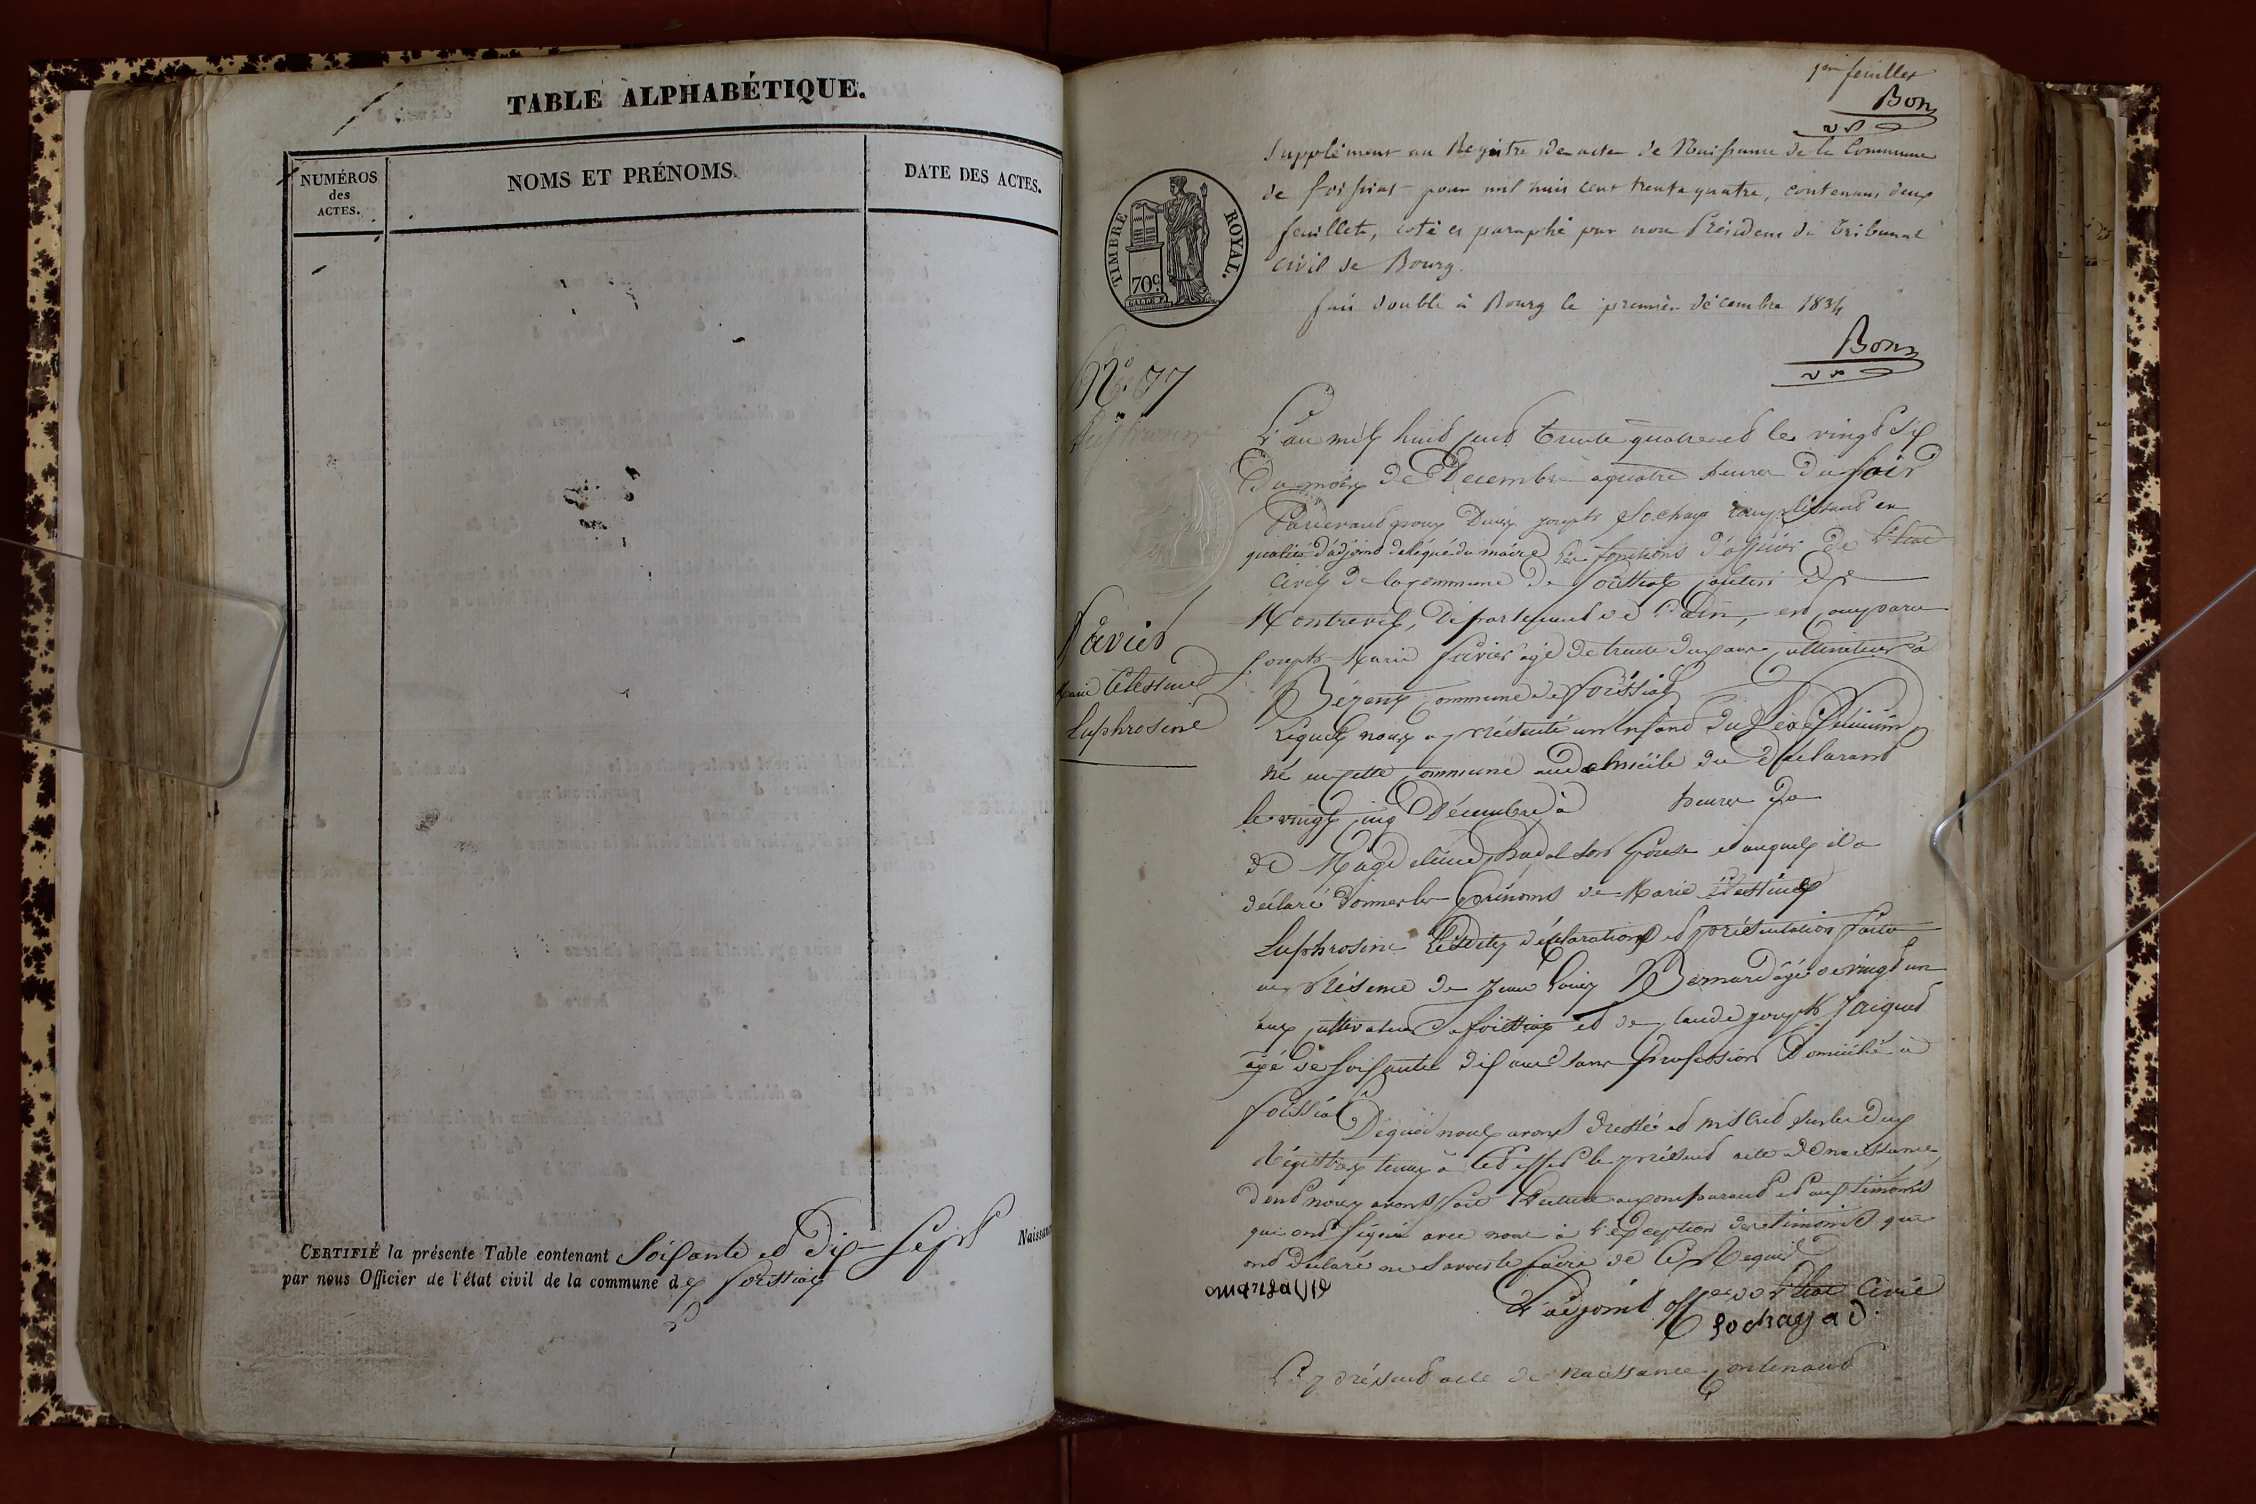 TABLE ALPHABÉTIQUE.
NUMÉROS
des
ACTES.
NOMS ET PRÉNOMS.
DATE DES ACTES.
CERTIFIÉ la présente Table contenant Soisante et dix Sept Naissan
par nous Officier de l'état civil de la commune de foissiat
1er feuillet
Bon
Supplément au Registre des actes de Naissance de la Commune
de foissiat pour mil huit cent trente quatre, contenant deux
feuillets, coté et paraphé par nous Président du Tribunal
civil de Bourg.
fait double à Bourg le premier décembre 1834
Bon
TIMBRE ROYAL.
70c.
No. 77
L'an mil huit cent trente quatre et le vingt six
Du mois de Decembre a quatre heures du soir
Pardevant nous Denis joseph Sochay remplissant en
qualité d'adjoint delégué du maire les fonctions d'officier de l'Etat
Civil de la commune de foissiat canton de
Montrevel, Département de l'ain, est comparu
Joseph Marie favier agé de trente deux ans cultivateur à
Bézent commune de foissiat
Lequel nous a présenté un Enfant du Sexe féminin
né en cette commune au domicile du Déclarant
le vingt cinq Décembre à heures du
de Magdeleine son Epouse et auquel il a
déclaré donner les prénoms de Marie Célestine
Euphrosine Lesdites déclaration et présentation faite
en présence de Jean Louis Bernard agé de vingt un
ans cultivateur a foissiat et de Claude joseph
agé de Soisante dix ans Sans profession Domicilié à
foissiat
De quoi nous avons dressé et inscrit sur les deux
Régistres tenus à cet effet le présent acte de naissance,
dont nous avons fait lecture au comparant et aux témoins
qui ont signé avec nous à l'exception des témoins qui
ont déclaré ne savoir le faire de ce Requis
L'adjoint offer de l'Etat Civil
Sochay ad.
favier
Marie Célestine
Euphrosine
Le présent acte de naissance contenant